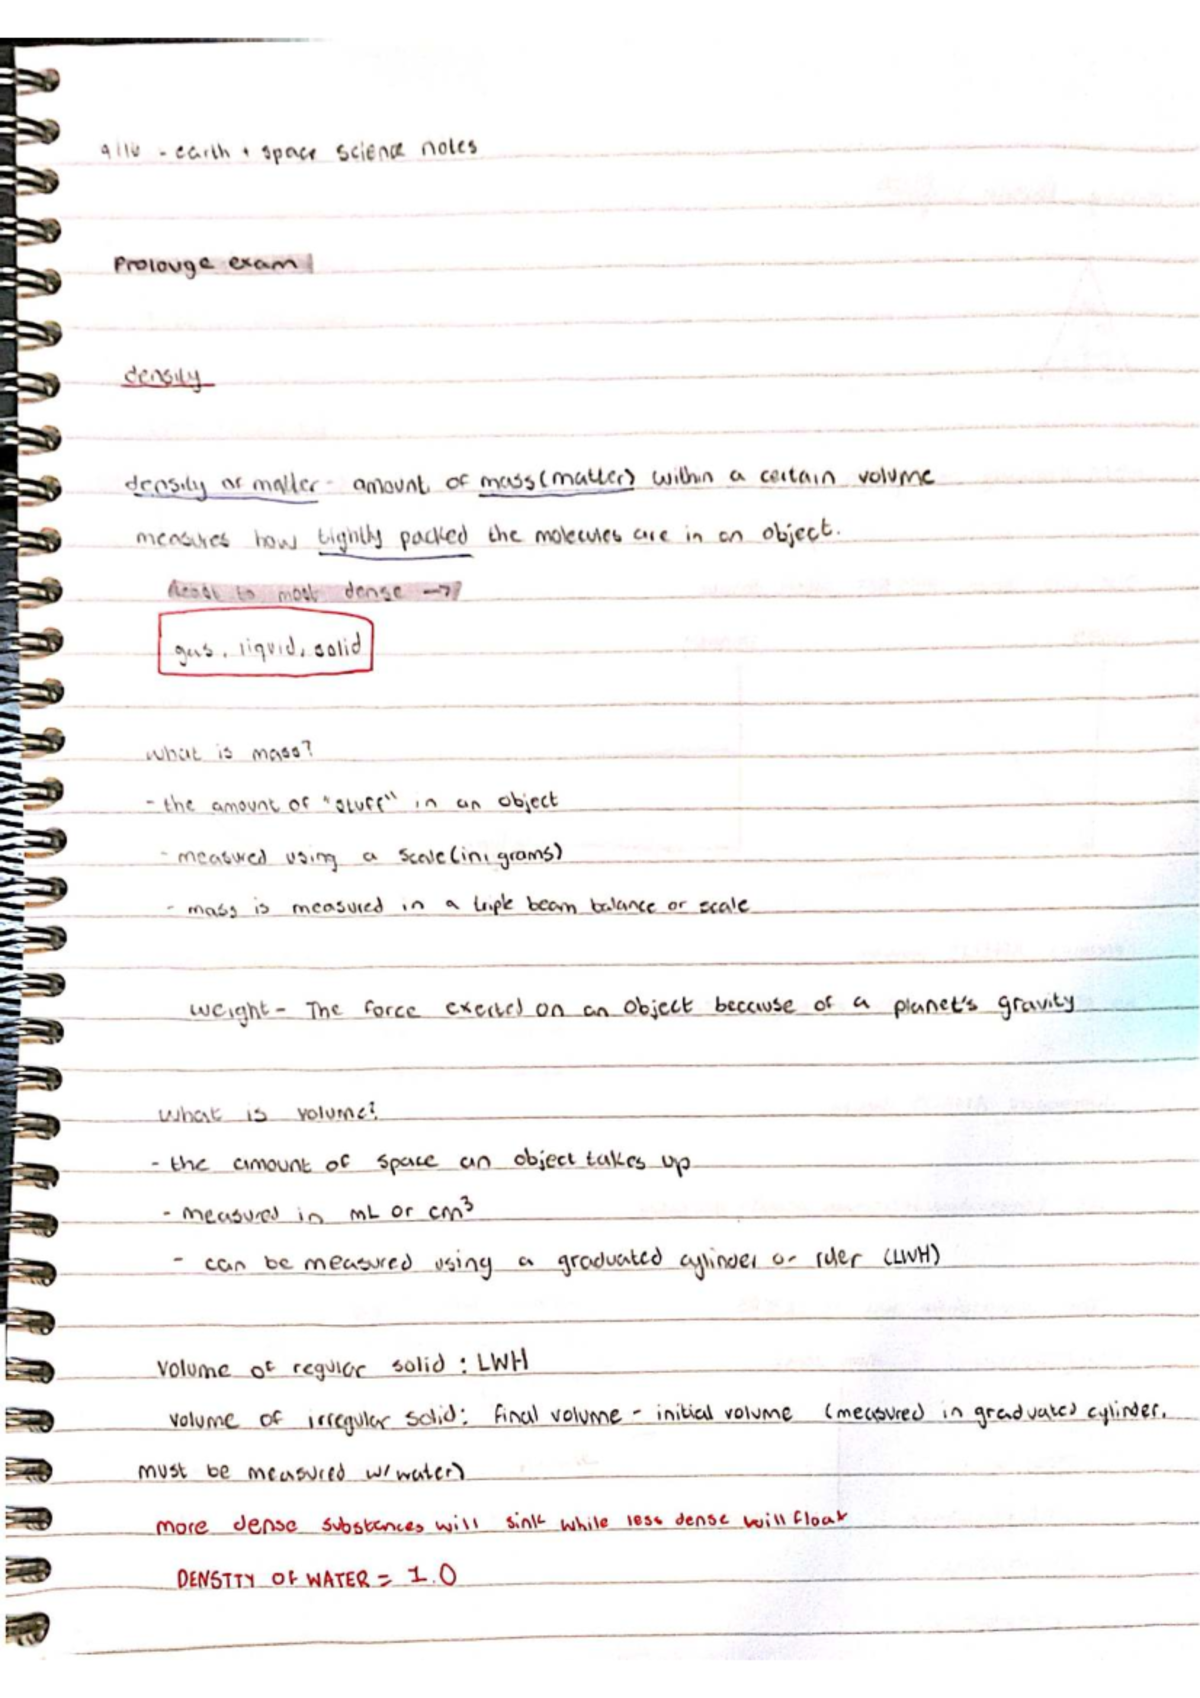 9/16 - earth + space science notes
Prolouge exam
density
density of matter - amount of mass (matter) within a certain volume
measures how tightly packed the molecules are in an object.
least to most dense →
gas, liquid, solid
what is mass?
- the amount of "stuff" in an object
- measured using a scale (in grams)
- mass is measured in a triple beam balance or scale
weight - The force exerted on an object because of a planet's gravity
what is volume?
- the amount of space an object takes up
- measured in mL or cm³
- can be measured using a graduated cylinder or ruler (LWH)
volume of regular solid : LWH
volume of irregular solid: final volume - initial volume (measured in graduated cylinder,
must be measured w/ water)
more dense substances will sink while less dense will float
DENSITY OF WATER = 1.0